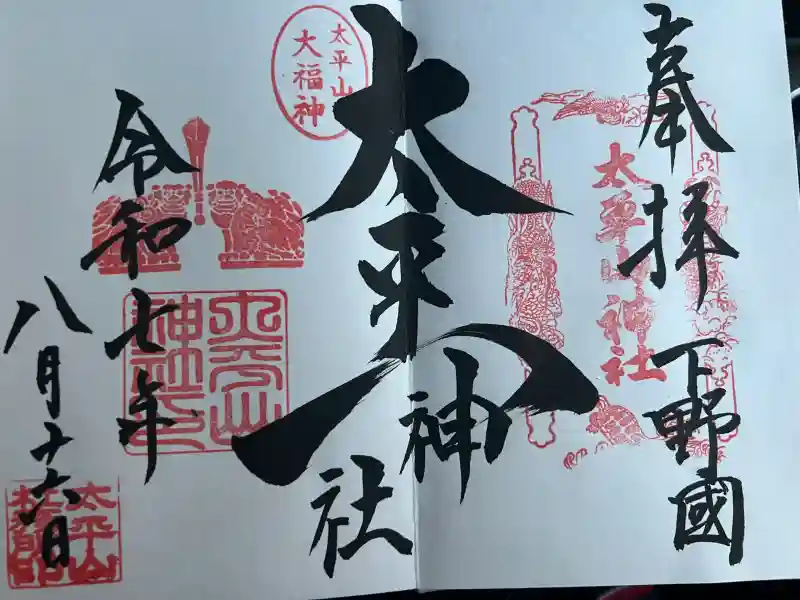 奉拝 下野國
太平山神社
太平山神社
太平山
大福神
令和七年
八月十六日
太平山神社印
太平山